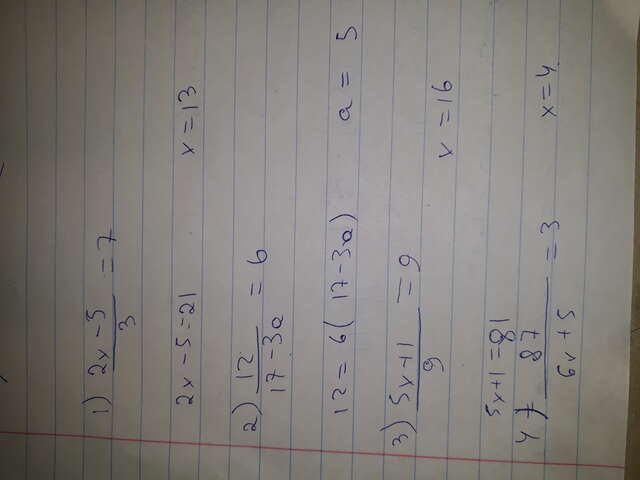 1) (2x - 5)/3 = 7
2x - 5 = 21 x = 13
2) 12/(17 - 3a) = 6
12 = 6(17 - 3a) a = 5
3) (5x + 1)/9 = 9
x = 16
5x + 1 = 81
4) 87/(6x + 5) = 3 x = 4